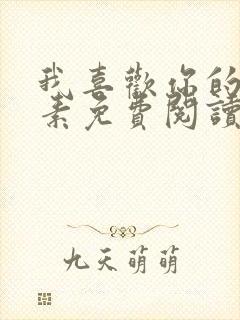 我喜歡你的
素免費閱讀
九天萌萌